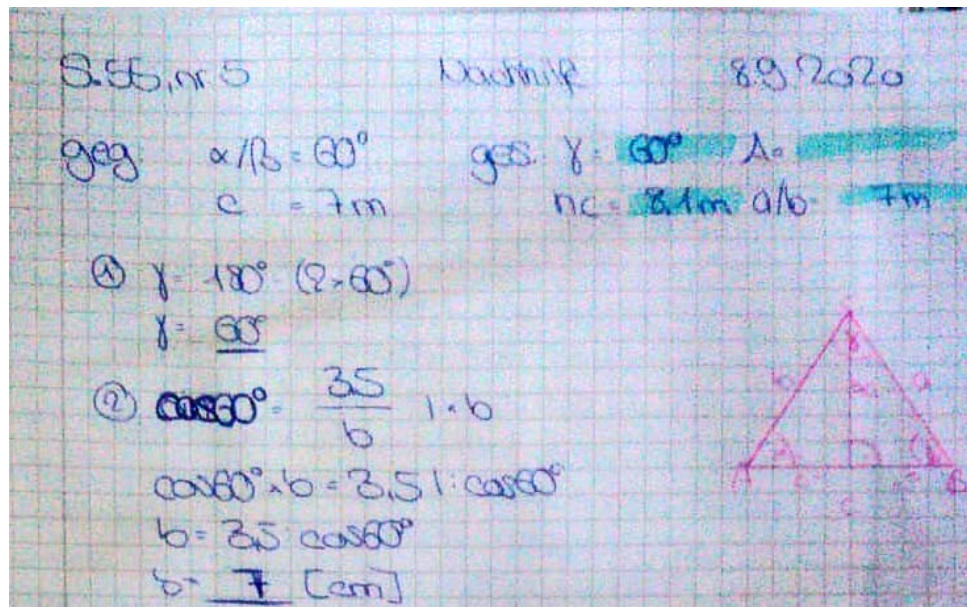 S.55, nr. 5 Nachhilfe 8.9.2020
geg: α/β = 60° ges. γ = 60° A =
c = 7m hc = 8,1m a/b = 7m
① γ = 180° - (2×60°)
γ = 60°
② cos60° = 3,5/b |·b
cos60°·b = 3,5 |:cos60°
b = 3,5 : cos60°
b = 7 [cm]
C
γ
b hc a
A B
c